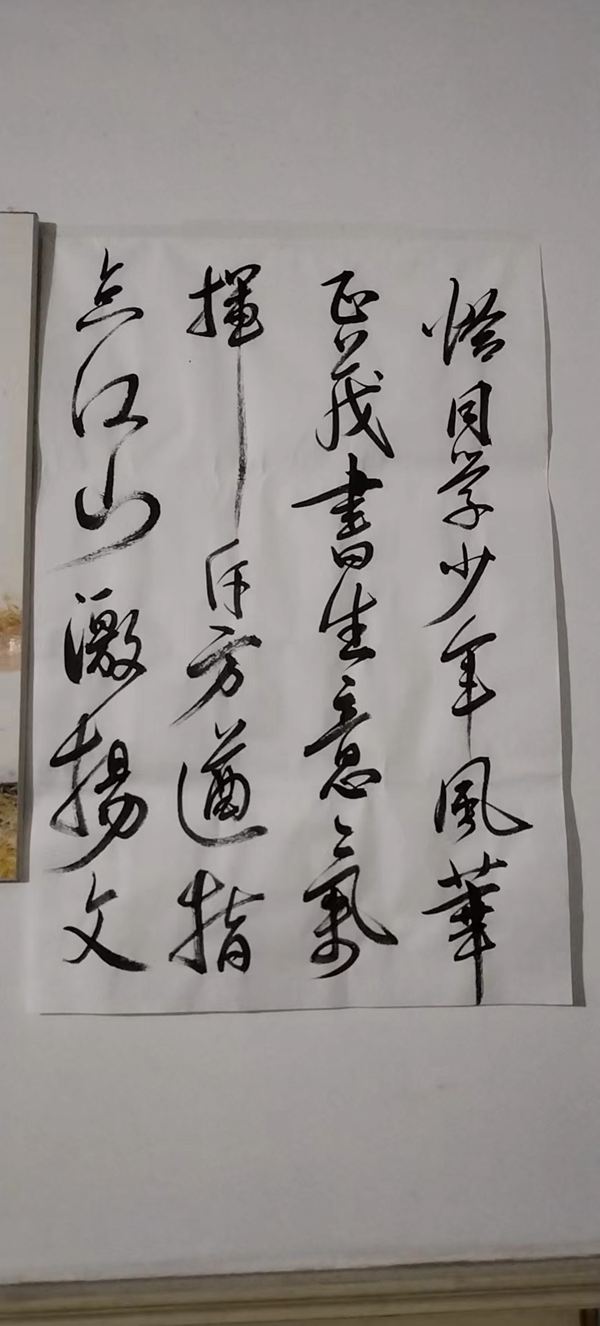 恰同学少年風華
正茂書生意氣
揮斥方遒指
点江山激揚文